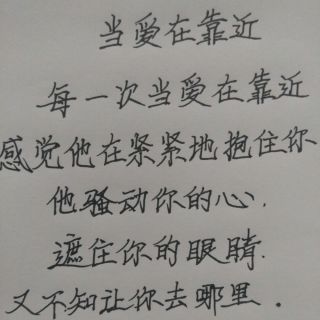 当爱在靠近
每一次当爱在靠近
感觉他在紧紧地抱住你
他骚动你的心，
遮住你的眼睛.
又不知让你去哪里.